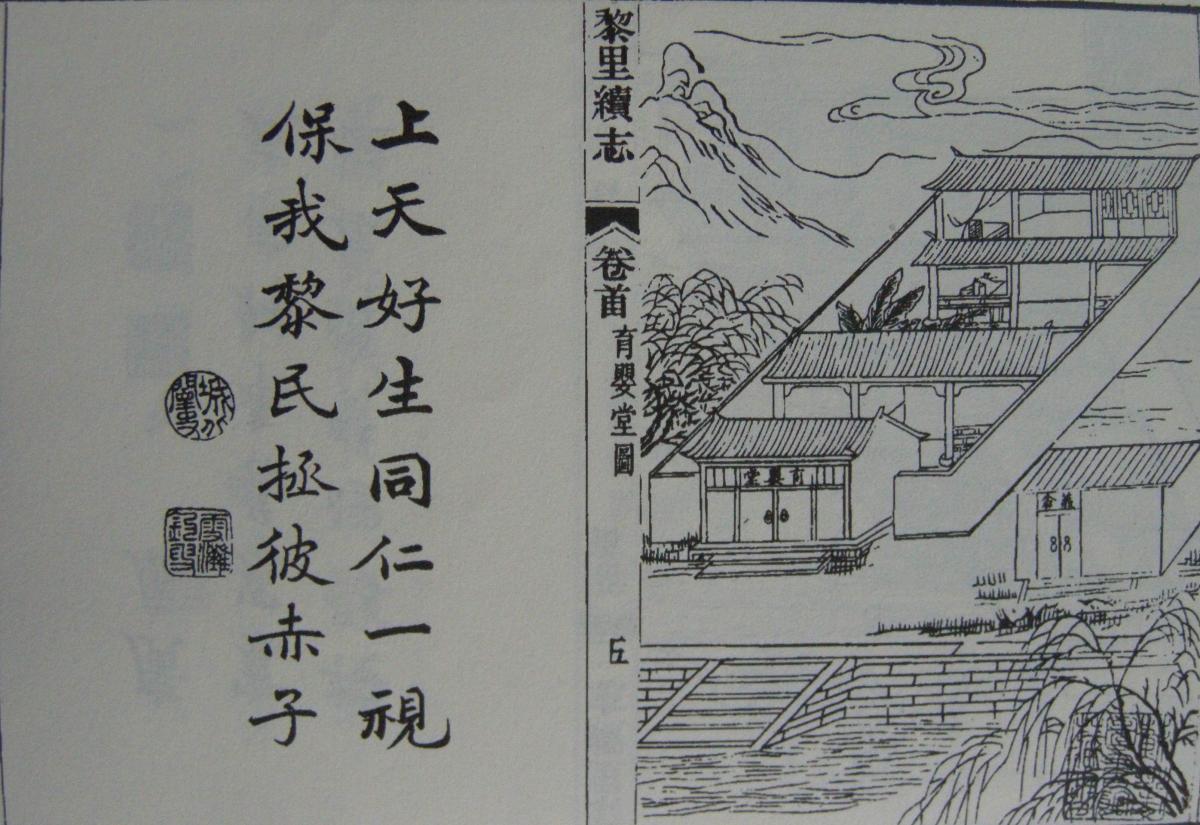 育嬰堂
黎里續志
卷首
育嬰堂圖
五
上天好生同仁一視
保我黎民拯彼赤子